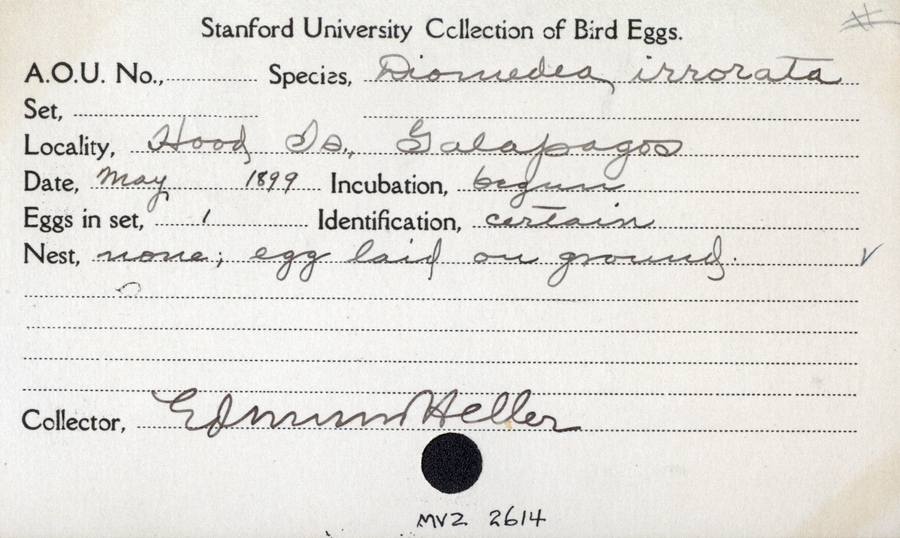 #
Stanford University Collection of Bird Eggs.
A.O.U. No., Species, Diomedea irrorata
Set,
Locality, Hood Is., Galapagos
Date, May 1899 Incubation, begun
Eggs in set, 1 Identification, certain
Nest, none; egg laid on ground. ✓
Collector, Edmund Heller
MVZ 2614